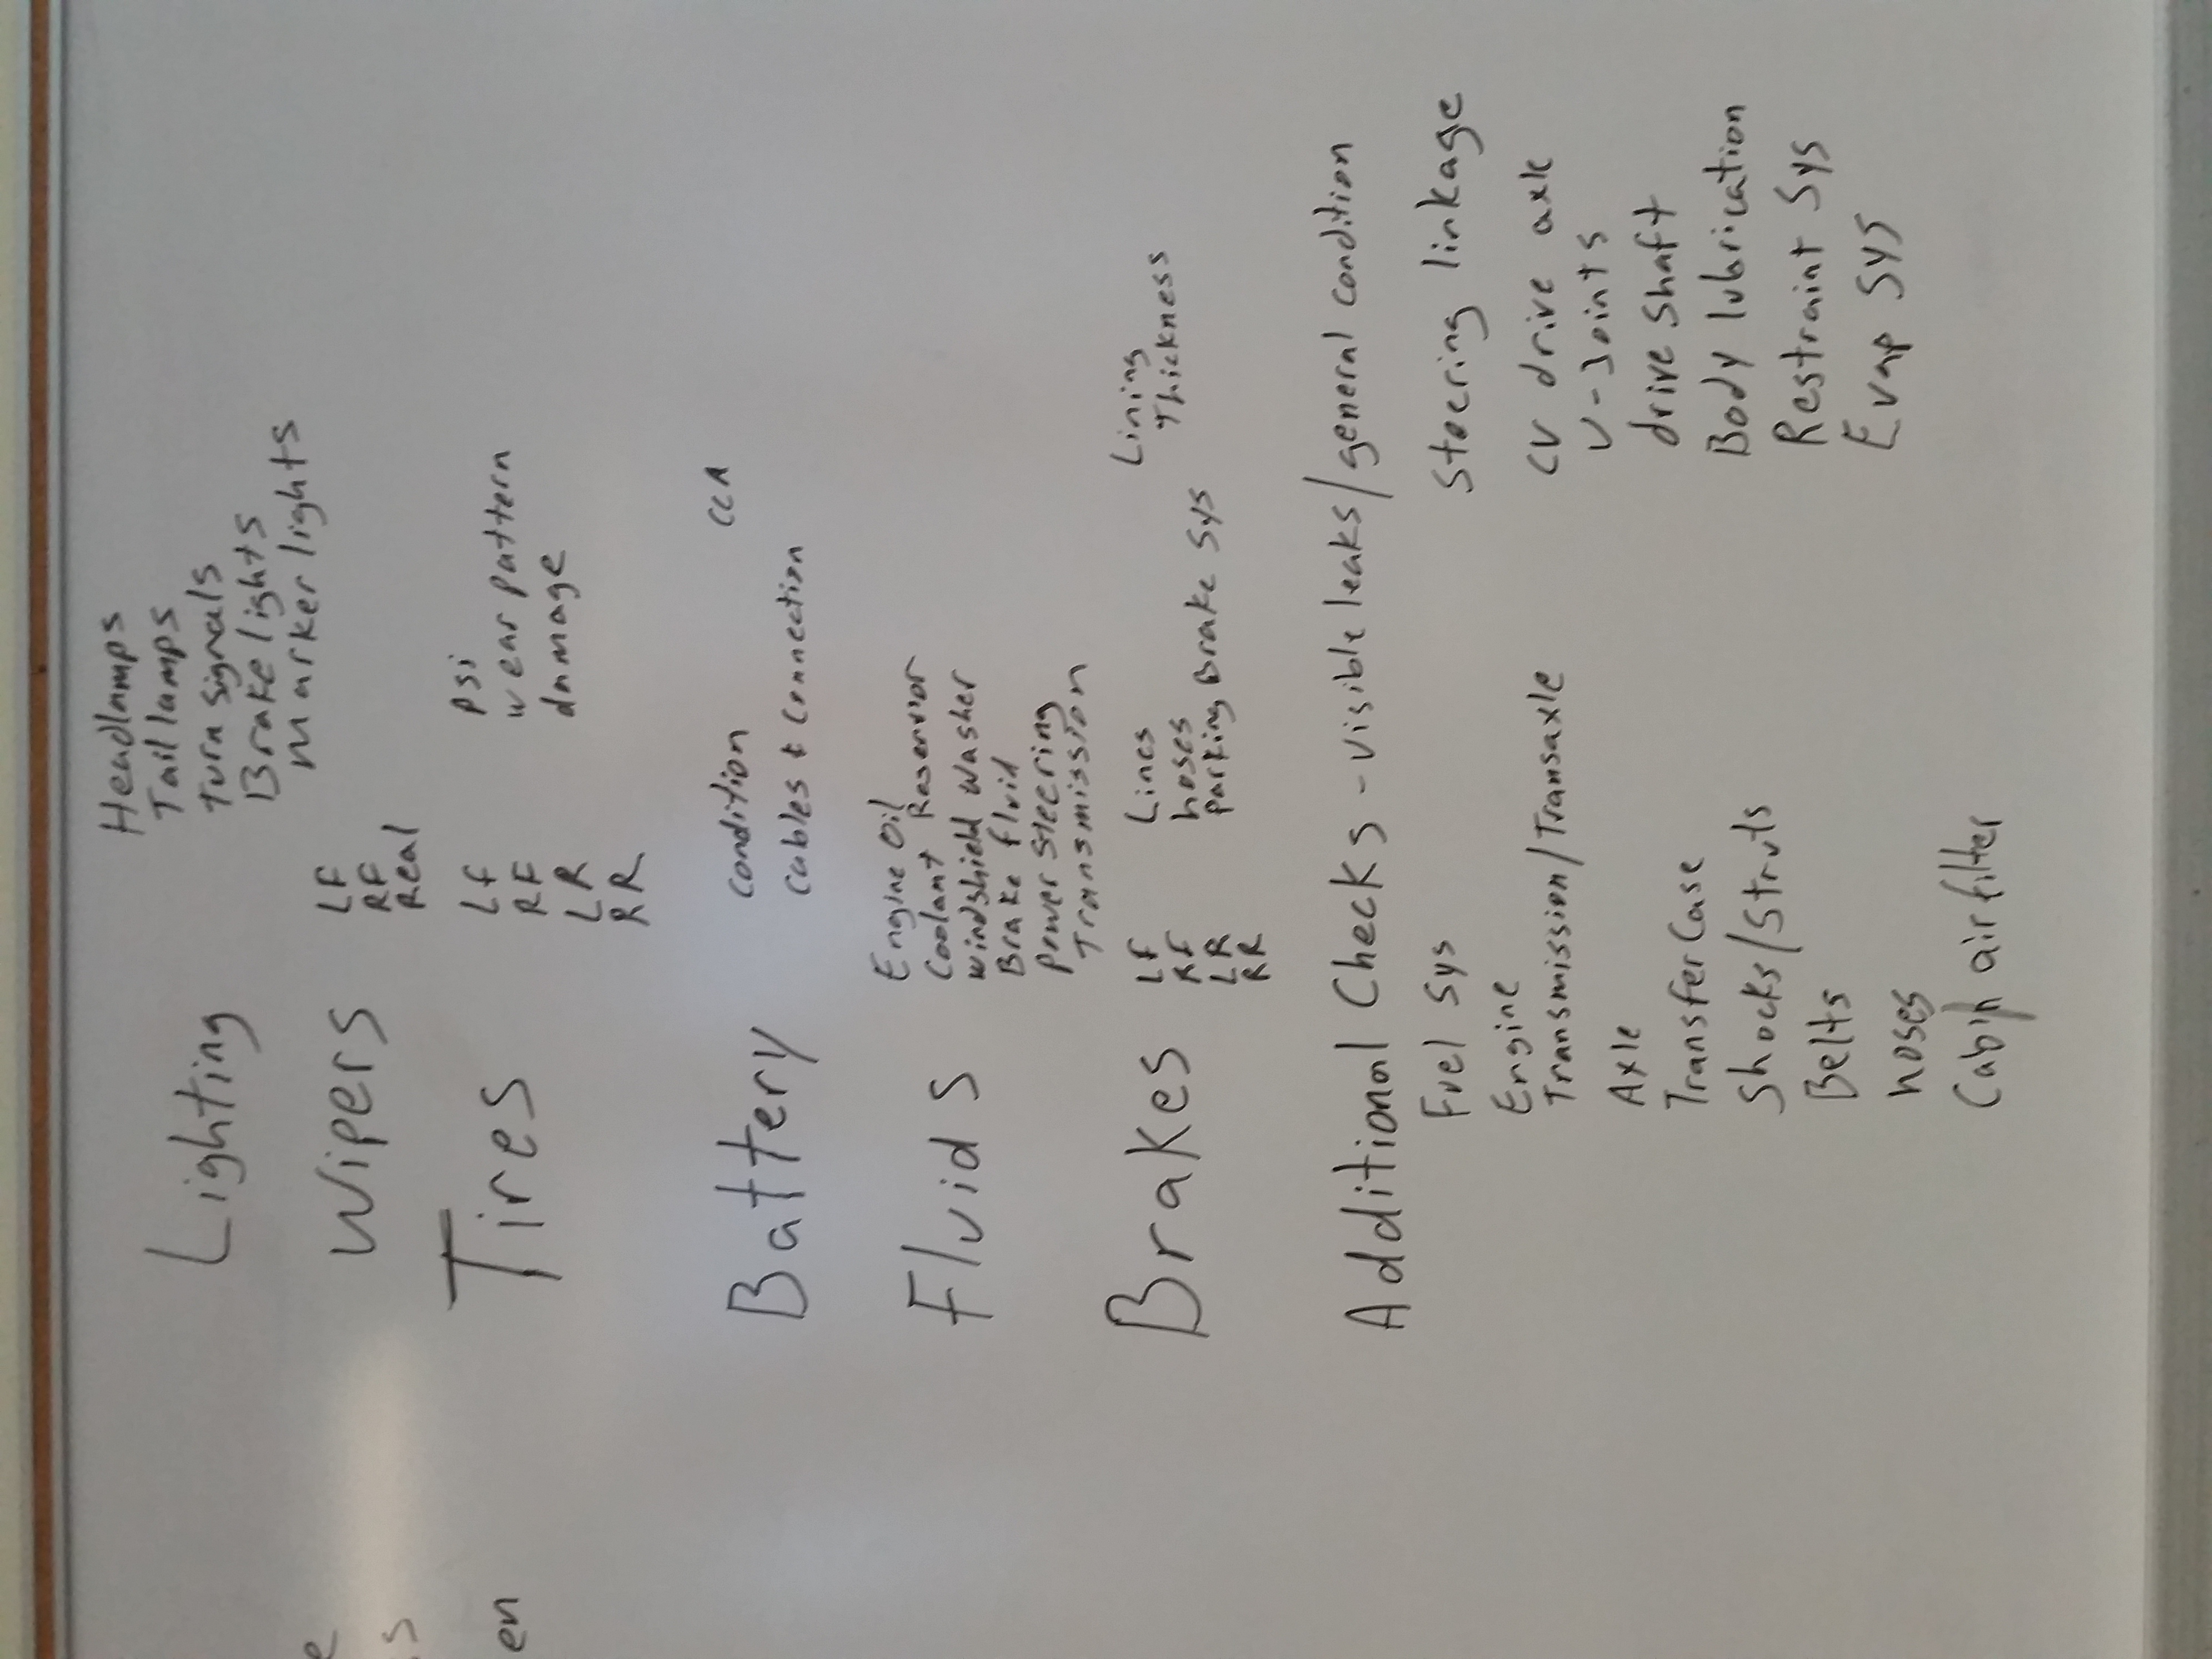 Lighting
Headlamps
Tail lamps
turn signals
Brake lights
marker lights
Wipers
LF
RF
Real
Tires
LF
RF
LR
RR
psi
wear pattern
damage
Battery
condition
cables & connection
CCA
Fluids
Engine Oil
Coolant Reservior
windshield washer
Brake fluid
power steering
Transmission
Brakes
LF
RF
LR
RR
Lines
hoses
parking Brake Sys
Lining
Thickness
Additional Checks - visible leaks/general condition
Fuel Sys
Engine
Transmission/Transaxle
Axle
Transfer Case
Shocks/Struts
Belts
hoses
Cabin air filter
Steering linkage
CV drive axle
U-Joints
drive shaft
Body lubrication
Restraint Sys
Evap Sys
e
s
en